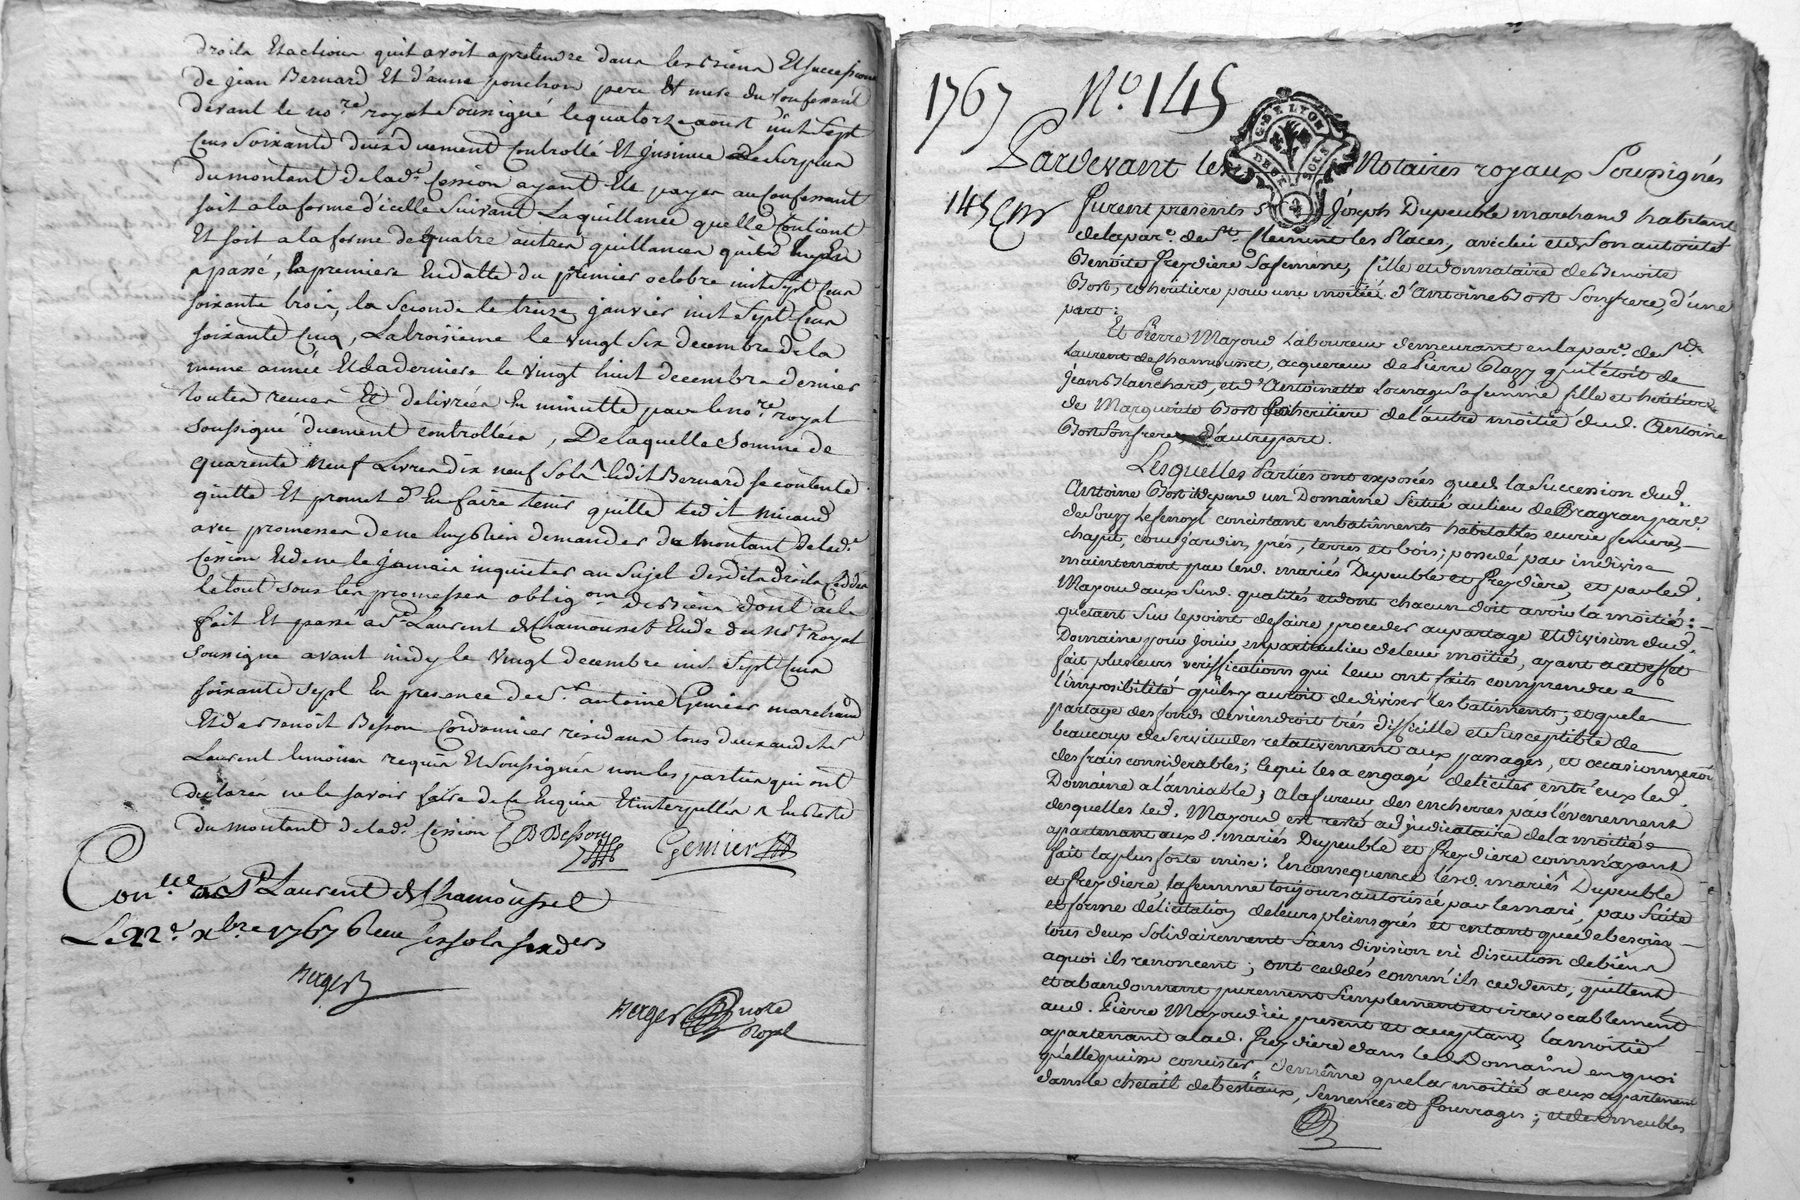 droits Et actions quil avoit a pretendre dans les biens Et successions
de jean Bernard Et d'anne ponchon pere Et mere du Confessant
devant le no.re royal soussigné le quatorze aoust mil sept
Cens soixante deux duement Controllé Et jnsinué Le surplus
du montant de lad.e Cession ayant Eté payer au Confessant
soit a la forme d'icelle suivant La quittance quelle Contient
Et soit a la forme de quatre autres quittances quil En
a passé, la premiere En datte du premier octobre mil sept Cens
soixante trois, la seconde le treize janvier mil sept Cens
soixante Cinq, La troisieme le vingt six decembre de la
meme année Et la derniere le vingt huit decembre dernier
toutes recues Et delivrées En minutte par le no.re royal
soussigné duement controllées, De laquelle somme de
quarente neuf Livres dix neuf sols ledit Bernard se contente
quitte Et promet d'En faire tenir quitte ledit
avec promesses de ne luy Rien demander du montant de lad.e
Cession Et de ne le jamais inquieter au sujet desdits droits Cedés
le tout sous les promesses oblig.on de biens dont acte
fait Et passé a S.t Laurent de Chamousset Etude du no.re royal
soussigné avant midy le vingt decembre mil sept Cens
soixante sept En presence de S.r antoine Genier marchand
Et de benoit Besson Cordonnier residans tous deux aud. St
Laurent temoins requis Et soussignés non les parties qui ont
declarés ne le savoir faire de ce Enquis Et interpellés
du montant de lad.e Cession BBesson Genier
Con.llé a S.t Laurent de Chamousset
Le 22.e xbre 1767 Reçu six sols
Berger
Berger note
Royal
1767 N.o 145
G. DE LYON
Pardevant les Notaires royaux Soussignés
145
furent présents S.r Joseph Dupeuble marchand habitant
de la par.e de S.t Clement les Places, avec lui et de Son autorité
Benoite Freydiere Sa femme, fille et donnataire de Benoite
Bost, coheritiere pour une moitié d'Antoine Bost Son frere, d'une
part:
Et Pierre Mayoud Laboureur demeurant en la par.e de S.t
Laurent de Chamousset, acquereur de Pierre Blazy qui l'étoit de
jean Blanchard, et d'Antoinette Sa femme fille et heritiere
de Marguerite Bost coheritiere de l'autre moitié dud. Antoine
Bost Son frere, d'autre part.
Lesquelles Parties ont exposées que de la Succession dud.
Antoine Bost il dépend un Domaine Situé au lieu de Bragran par.e
de Souzy Consistant en batiments habitables ecurie fenieres,
chapit, cour, jardin, prés, terres et bois; possedé par indivise
maintenant par lesd. mariés Dupeuble et Freydière, et par led.
Mayoud aux Susd. qualités et dont chacun doit avoir la moitié:
qu'etant Sur le point de faire proceder au partage et division dud.
Domaine pour jouir en particulier de leur moitié, ayant a cet effet
fait plusieurs verifications qui leur ont faits comprendre
l'imposibilité qu'il y auroit de diviser les batiments; et que le
partage des fonds deviendroit trés difficille et Susceptible de
beaucoup de Servitudes relativement aux passages, et occasionneroit
des frais considerables; ce qui les a engagé de liciter entr'eux led.
Domaine a l'amiable; a la fureur des encherres par l'évenement
desquelles led. Mayoud est resté adjudicataire de la moitié
apartenant aux d. mariés Dupeuble et Freydiere comm'ayant
fait la plus forte mise: En consequence lesd. mariés Dupeuble
et Freydiere, la femme toujours autorisée par le mari, par Suite
et forme de licitation de leurs pleins grés et en tant que de besoin
tous deux Solidairement Sans division ni discution de biens
a quoi ils renoncent; ont ceddés comm'ils ceddent, quittent
et abandonnent purement Simplement et irrevocablement
aud. Pierre Mayoud ici present et acceptant, la moitié
apartenant a lad. Freydiere dans led. Domaine en quoi
qu'elle puisse consister, de même que la moitié a eux appartenant
dans le chetail de bestiaux, Semences et fourrages; et des meubles